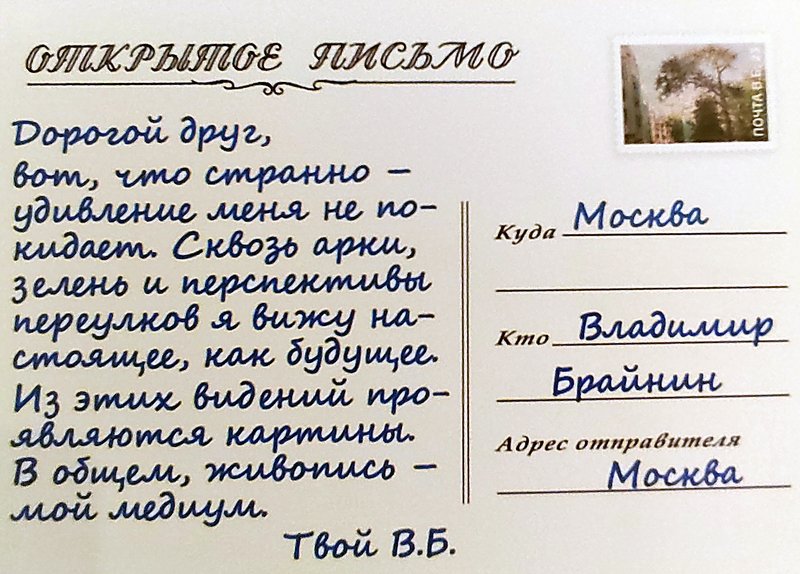 ОТКРЫТОЕ ПИСЬМО
Дорогой друг,
вот, что странно –
удивление меня не по-
кидает. Сквозь арки,
зелень и перспективы
переулков я вижу на-
стоящее, как будущее.
Из этих видений про-
являются картины.
В общем, живопись –
мой медиум.
Твой В.Б.
ПОЧТА В.Б.
Куда Москва
Кто Владимир
Брайнин
Адрес отправителя
Москва